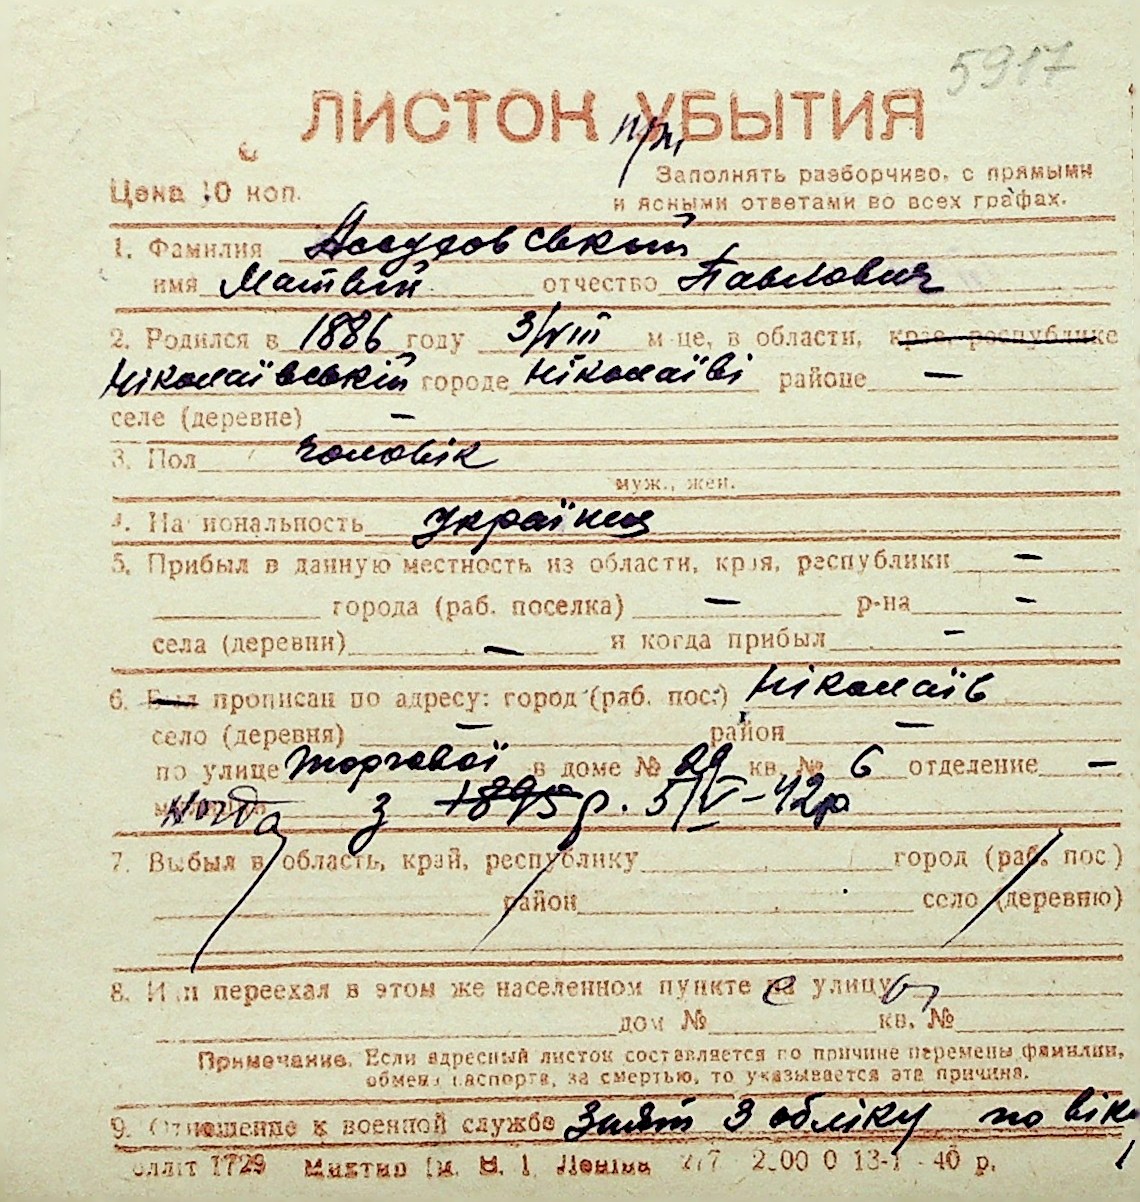 5917
ЛИСТОК УБЫТИЯ
при
Цена 10 коп.
Заполнять разборчиво, с прямыми
и ясными ответами во всех графах.
1. Фамилия
имя Матвій отчество Павлович
2. Родился в 1886 году 3/VIII м-це, в области, крае, республике
Ніколаївській городе Ніколаїві районе —
селе (деревне) —
3. Пол чоловік
муж., жен.
4. Национальность українец
5. Прибыл в данную местность из области, края, республики —
города (раб. поселка) — р-на —
села (деревни) — и когда прибыл —
6. Был прописан по адресу: город (раб. пос.) Ніколаїв
село (деревня) — район —
по улице Торговой в доме № 29 кв. № 6 отделение —
з 1895 р. 5/V-42р
7. Выбыл в область, край, республику город (раб. пос.)
район село (деревню)
8. Или переехал в этом же населенном пункте на улицу
дом № кв. №
Примечание. Если адресный листок составляется по причине перемены фамилии,
обмена паспорта, за смертью, то указывается эта причина.
9. Отношение к военной службе Знят З обліку по віку
1729 ім. В. І. Леніна 13-1 40 р.